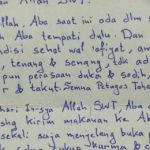 Allah SWT.
llah, Aba saat ini ada dlm
Aba tempati dulu. Dan
disi sehat wal 'afiat, am
, tenang & senang, tdk ad
pun perasaan duka & sedih,
r & takut. Semua Petugas Taha
hari. In-sya Allah SWT, Aba
sha kirim makanan ke Ab
sekali saja menjelang buka
kurma &